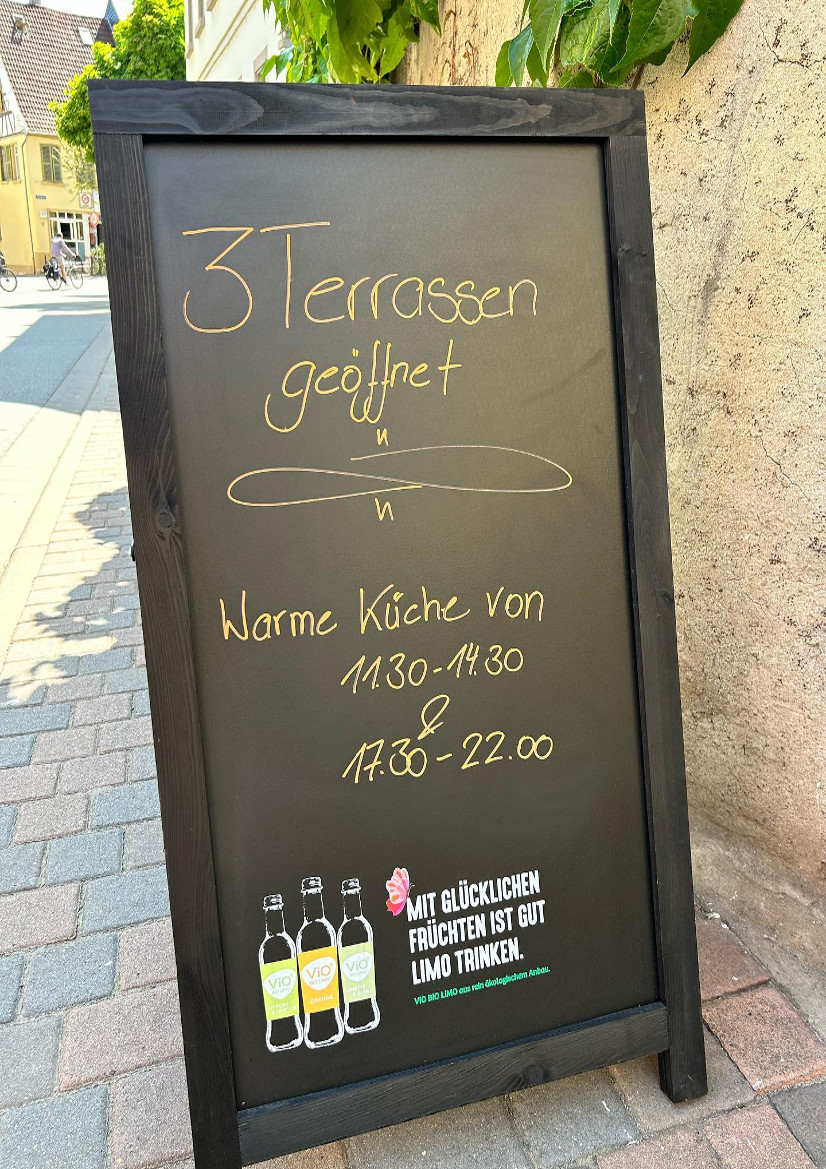 3 Terrassen
geöffnet
Warme Küche von
11.30-14.30
&
17.30-22.00
MIT GLÜCKLICHEN
FRÜCHTEN IST GUT
LIMO TRINKEN.
ViO BiO LiMO aus rein ökologischem Anbau.
ViO
BiO LiMO
ORANGE
ViO
ViO